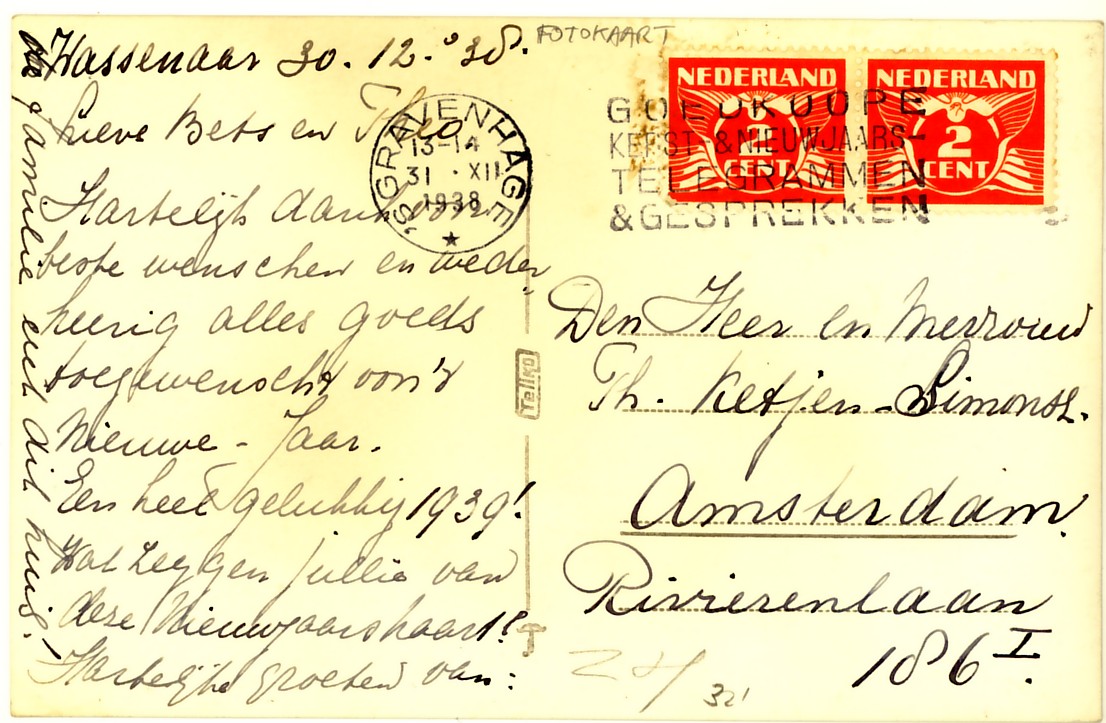 Wassenaar 30.12.'38.
Lieve Bets en Theo
Hartelijk dank voor
beste wenschen en weder
keerig alles goeds
toegewenscht voor 't
Nieuwe-Jaar.
Een heel gelukkig 1939!
Wat zeggen jullie van
deze Nieuwjaarskaart!?
Hartelijke groeten van:
de familie uit dit huis!
FOTOKAART
'S GRAVENHAGE
13-14
31 · XII
1938
GOEDKOOPE
KERST- & NIEUWJAARS-
TELEGRAMMEN
& GESPREKKEN
NEDERLAND
CENT
NEDERLAND
2
CENT
Tellko
Den Heer en Mevrouw
Th. Ketjen-Simonsz.
Amsterdam.
Rivierenlaan
186 I.